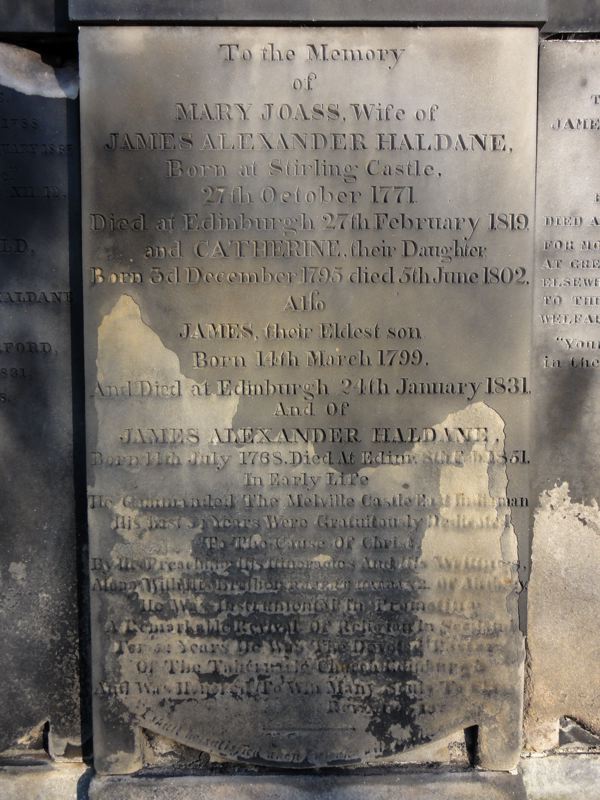 To the Memory
of
MARY JOASS, Wife of
JAMES ALEXANDER HALDANE,
Born at Stirling Castle,
27th October 1771.
Died at Edinburgh 27th February 1819.
and CATHERINE, their Daughter
Born 3d December 1795 died 5th June 1802.
Also
JAMES, their Eldest son
Born 14th March 1799.
And Died at Edinburgh 24th January 1831.
And Of
JAMES ALEXANDER HALDANE,
Born 14th July 1768. Died At 1851.
In Early Life
He Commanded The Melville Castle East
His Last Years Were Gratuitously Dedicated
To The Cause Of Christ
By His Preaching His And His Writings,
Many With His Brethren Of
He Was Instrumental In Promoting
A Remarkable Revival Of Religion In
For Years He Was The Devoted Pastor
Of The Tabernacle Church Edinburgh
And Was Honored To Win Many Souls To
JAMES
DIED A
AT GRE
ELSEW
TO THE
WELFA
"You
in the
HALDANE
1831.